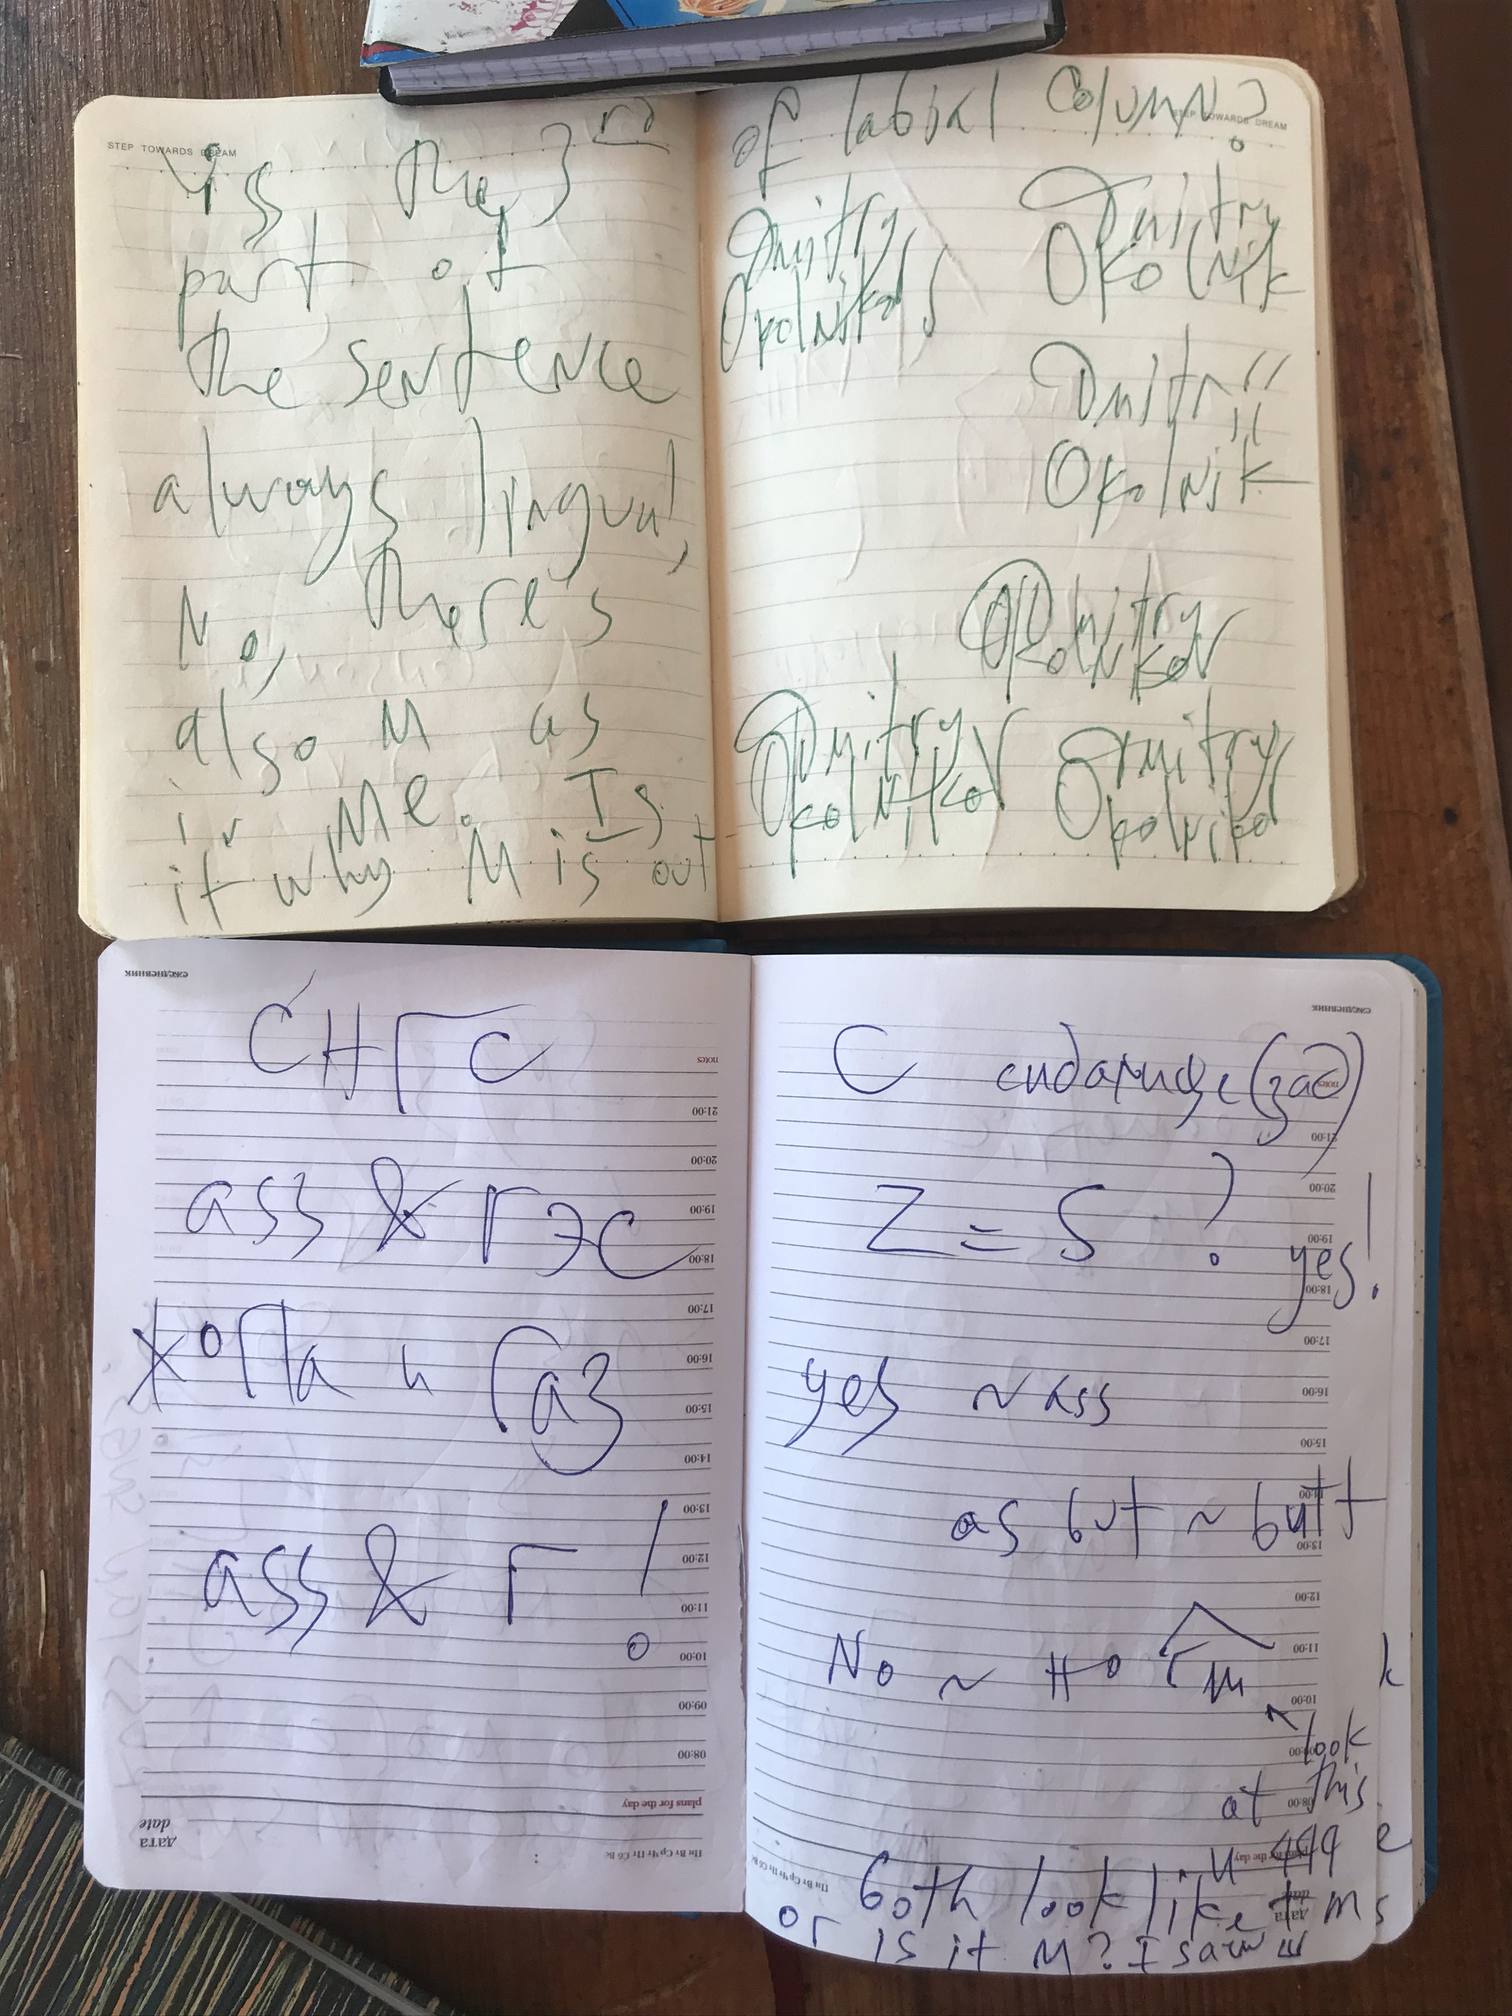 STEP TOWARDS DREAM
Is the 3rd
part of
the sentence
always lingual,
No, there's
also M as
in Me. Is
it why M is out
STEP TOWARDS DREAM
of labial column?
Dmitry
Okolnikov
Dmitry
Okolnik
Dmitrii
Okolnik
Dmitry
Okolnikov
Dmitry
Okolnikov
Dmitry
Okolnikov
ежедневник
СНГС
ass & гэс
жопа и газ
ass & г!
notes
21:00
20:00
19:00
18:00
17:00
16:00
15:00
14:00
13:00
12:00
11:00
10:00
09:00
08:00
plans for the day
дата
date
Пн Вт Ср Чт Пт Сб Вс
ежедневник
С (зад)
Z = S ? yes!
yes ~ ass
as but ~ butt
No ~ но
look
at this
both look like t
or is it M? I saw ш
notes
21:00
20:00
19:00
18:00
17:00
16:00
15:00
13:00
12:00
11:00
10:00
08:00
plans for the day
дата
date
Пн Вт Ср Чт Пт Сб Вс